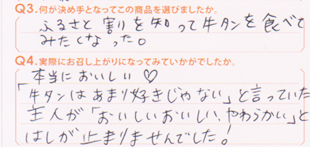 Q3.何が決め手となってこの商品を選びましたか。
ふるさと割りを知って牛タンを食べて
みたくなった。
Q4.実際にお召し上がりになってみていかがでしたか。
本当においしい♡
「牛タンはあまり好きじゃない」と言っていた
主人が「おいしいおいしい、やわらかい」と
はしが止まりませんでした!